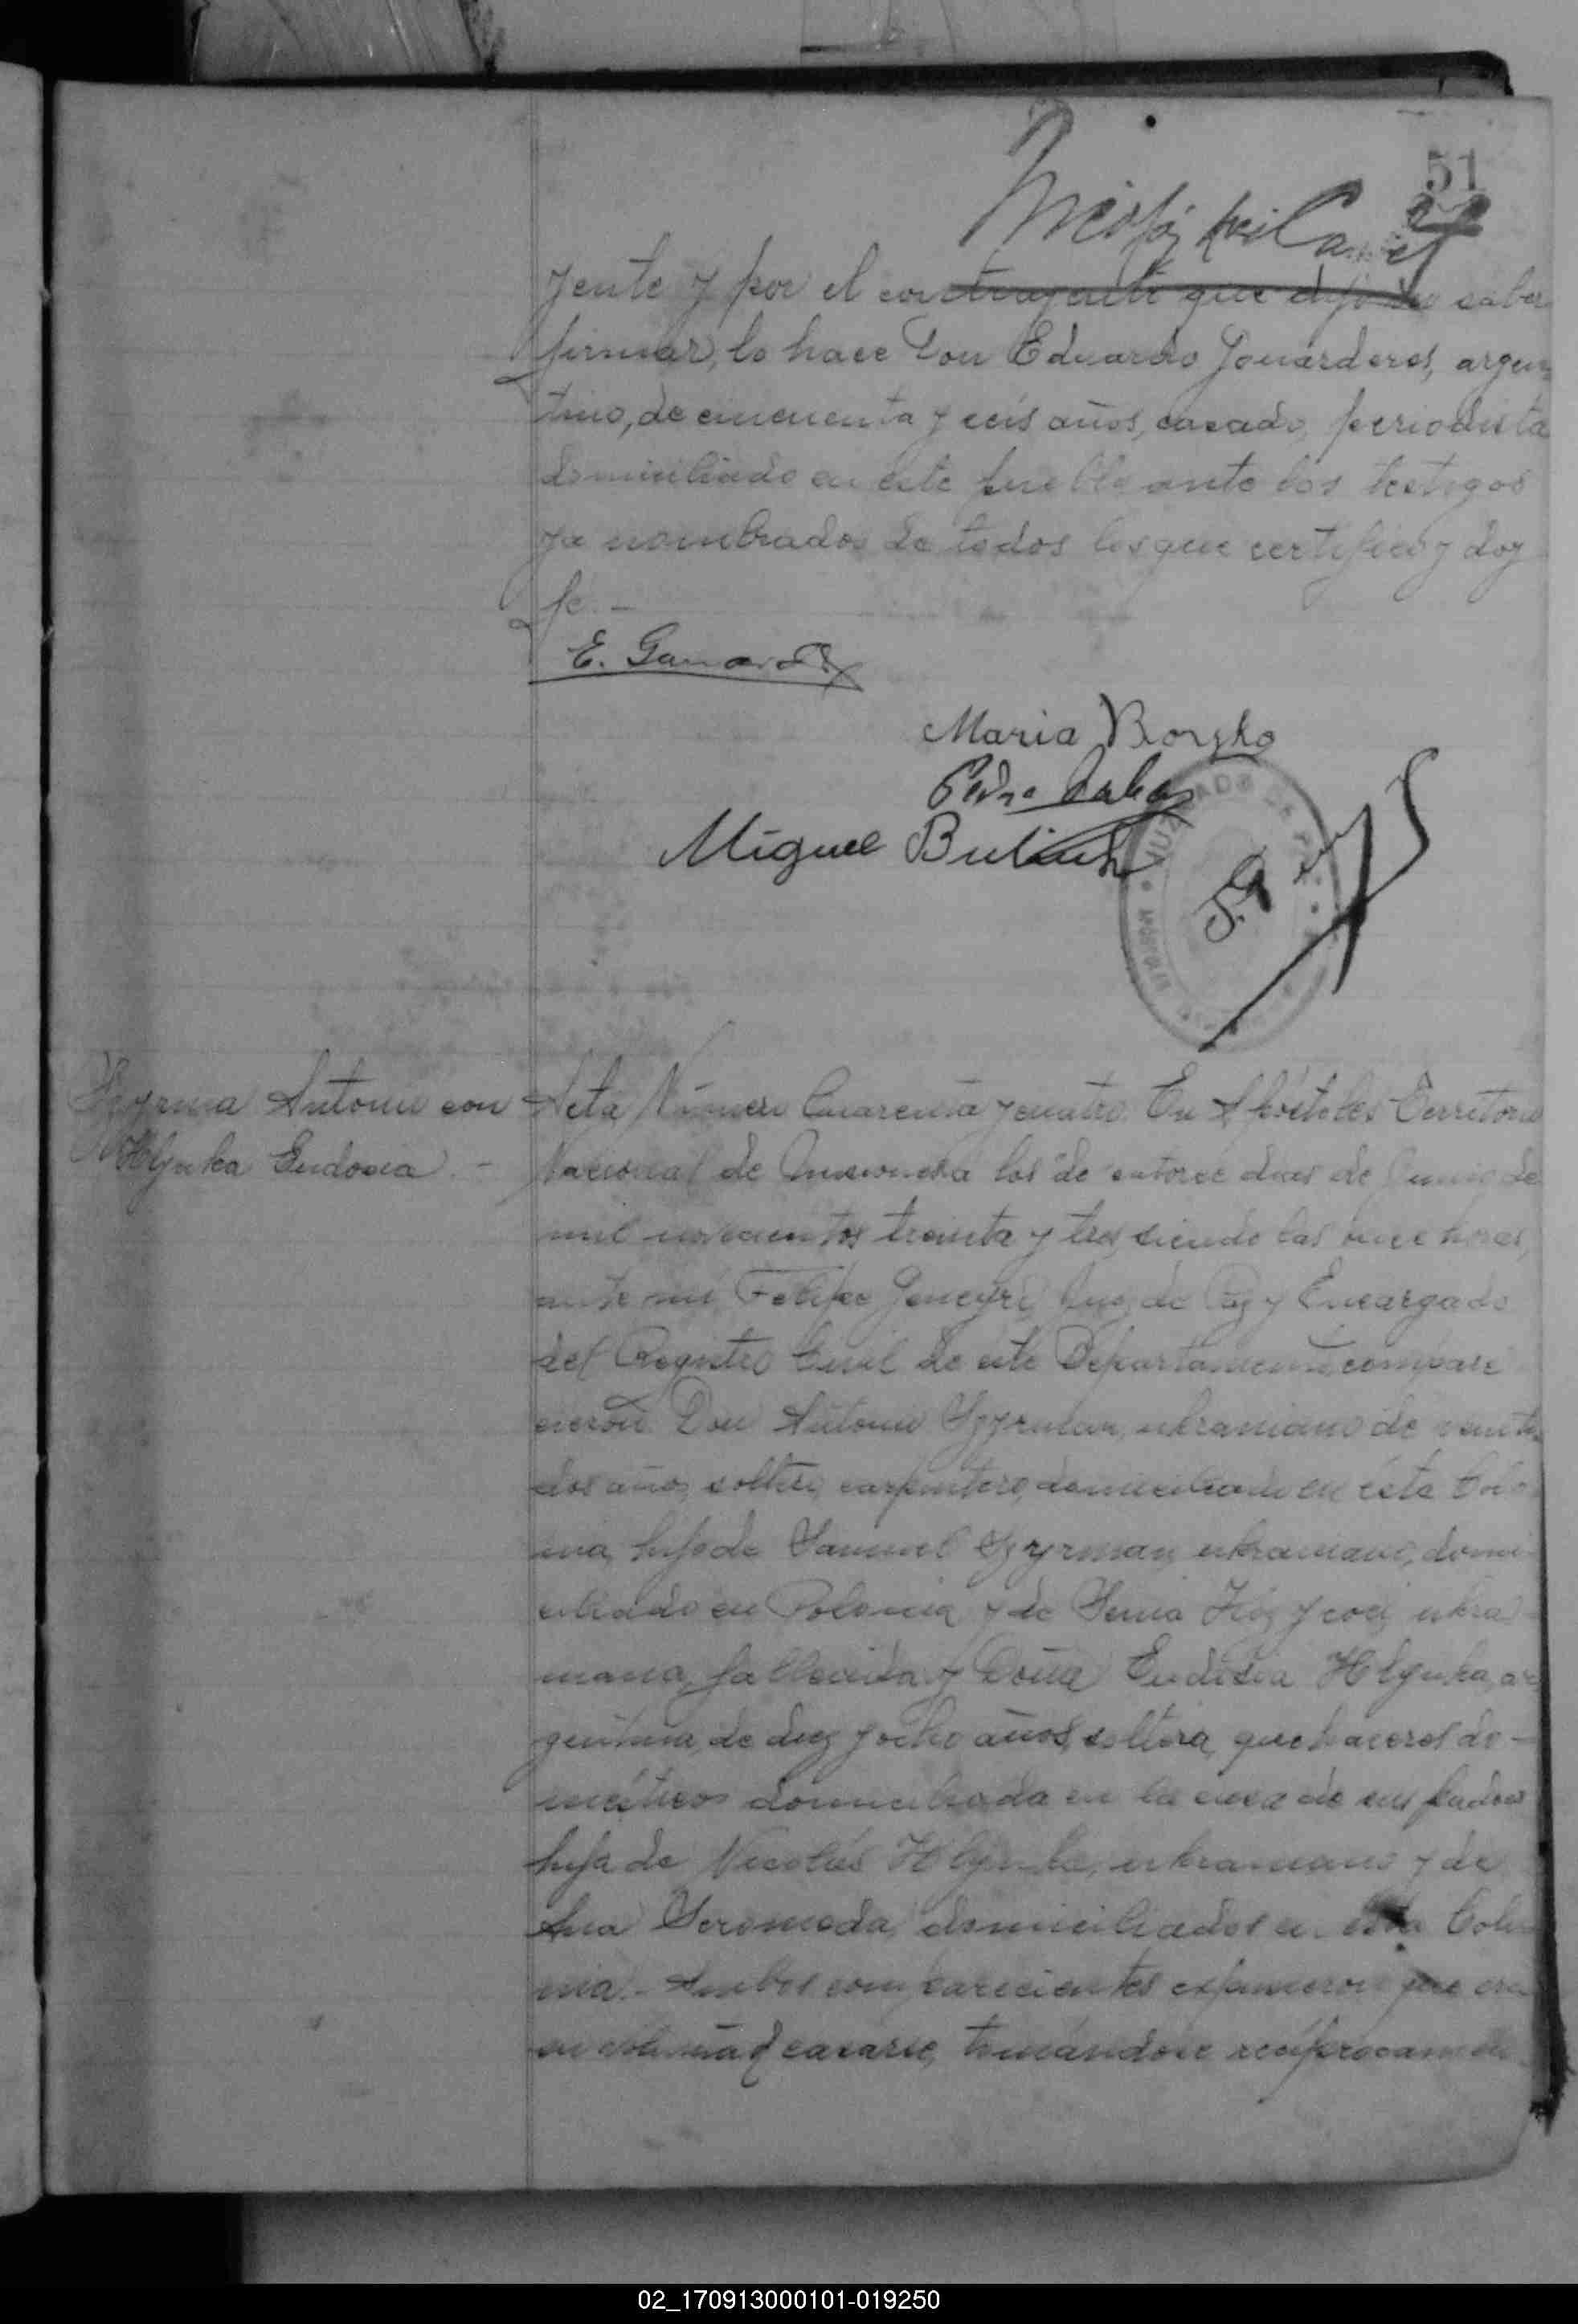 51
yente y por el contrayente que dijo no saber
firmar, lo hace Don Eduardo argen
tino, de cincuenta y seis años, casado, periodista
domiciliado en este pueblo ante los testigos
ya nombrados de todos los que certifico y doy
fé.-
E.
Maria
Pedro
Miguel
JUZGADO DE PAZ
Antonio con Acta Número Cuarenta y cuatro. En Apóstoles Territorio
Hlynka Eudosia.- Nacional de Misiones a los de catorce dias de Junio de
mil novecientos treinta y tres, siendo las once horas,
ante mí, Felipe Juez de Paz y Encargado
del Registro Civil de este Departamento, compare
cieron: Don Antonio Szyrman, ukraniano de veinte
dos años, soltero, carpintero, domiciliado en ésta Colo
nia, hijo de Samuel Szyrman, ukraniano, domi
ciliado en Polonia y de ukra
niana, fallecida y Doña Eudosia Hlynka, ar
gentina, de diez y ocho años, soltera, quehaceres do-
mésticos domiciliada en la casa de sus padres
hija de Nicolás Hlynka, ukraniano y de
Ana domiciliados en esta Colo
nia.- Ambos comparecientes expusieron que era
su voluntad casarse, tomándose recíprocamen
02_170913000101-019250